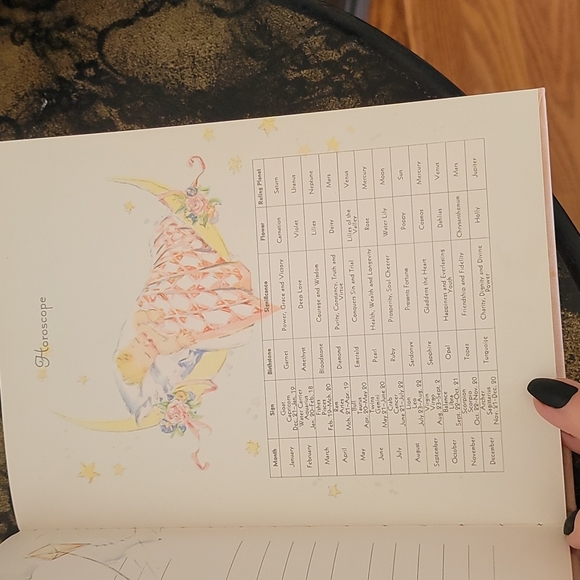 Horoscope
Month Sign Birthstone Significance Flower Ruling Planet
January Goat Capricorn Dec. 21–Jan. 19 Garnet Power, Grace and Victory Carnation Saturn
February Water Carrier Aquarius Jan. 20–Feb. 18 Amethyst Deep Love Violet Uranus
March Fishes Pisces Feb. 19–Mch. 20 Bloodstone Courage and Wisdom Lilies Neptune
April Ram Aries Mch. 21–Apr. 19 Diamond Purity, Constancy, Truth and Virtue Daisy Mars
May Bull Taurus Apr. 20–May 20 Emerald Conquers Sin and Trial Lilies of the Valley Venus
June Twins Gemini May 21–June 20 Pearl Health, Wealth and Longevity Rose Mercury
July Crab Cancer June 21–July 22 Ruby Prosperity, Soul Cheerer Water Lily Moon
August Lion Leo July 23–Aug. 22 Sardonyx Presents Fortune Poppy Sun
September Virgin Virgo Aug. 23–Sept. Sapphire Gladdens the Heart Cosmos Mercury
October Balance Libra Opal Happiness and Everlasting Youth Dahlias Venus
November Scorpion Scorpio Oct. 22–Nov. 20 Topaz Friendship and Fidelity Chrysanthemum Mars
December Archer Sagittarius Nov. 21–Dec. 20 Turquoise Charity, Dignity and Divine Power Holly Jupiter